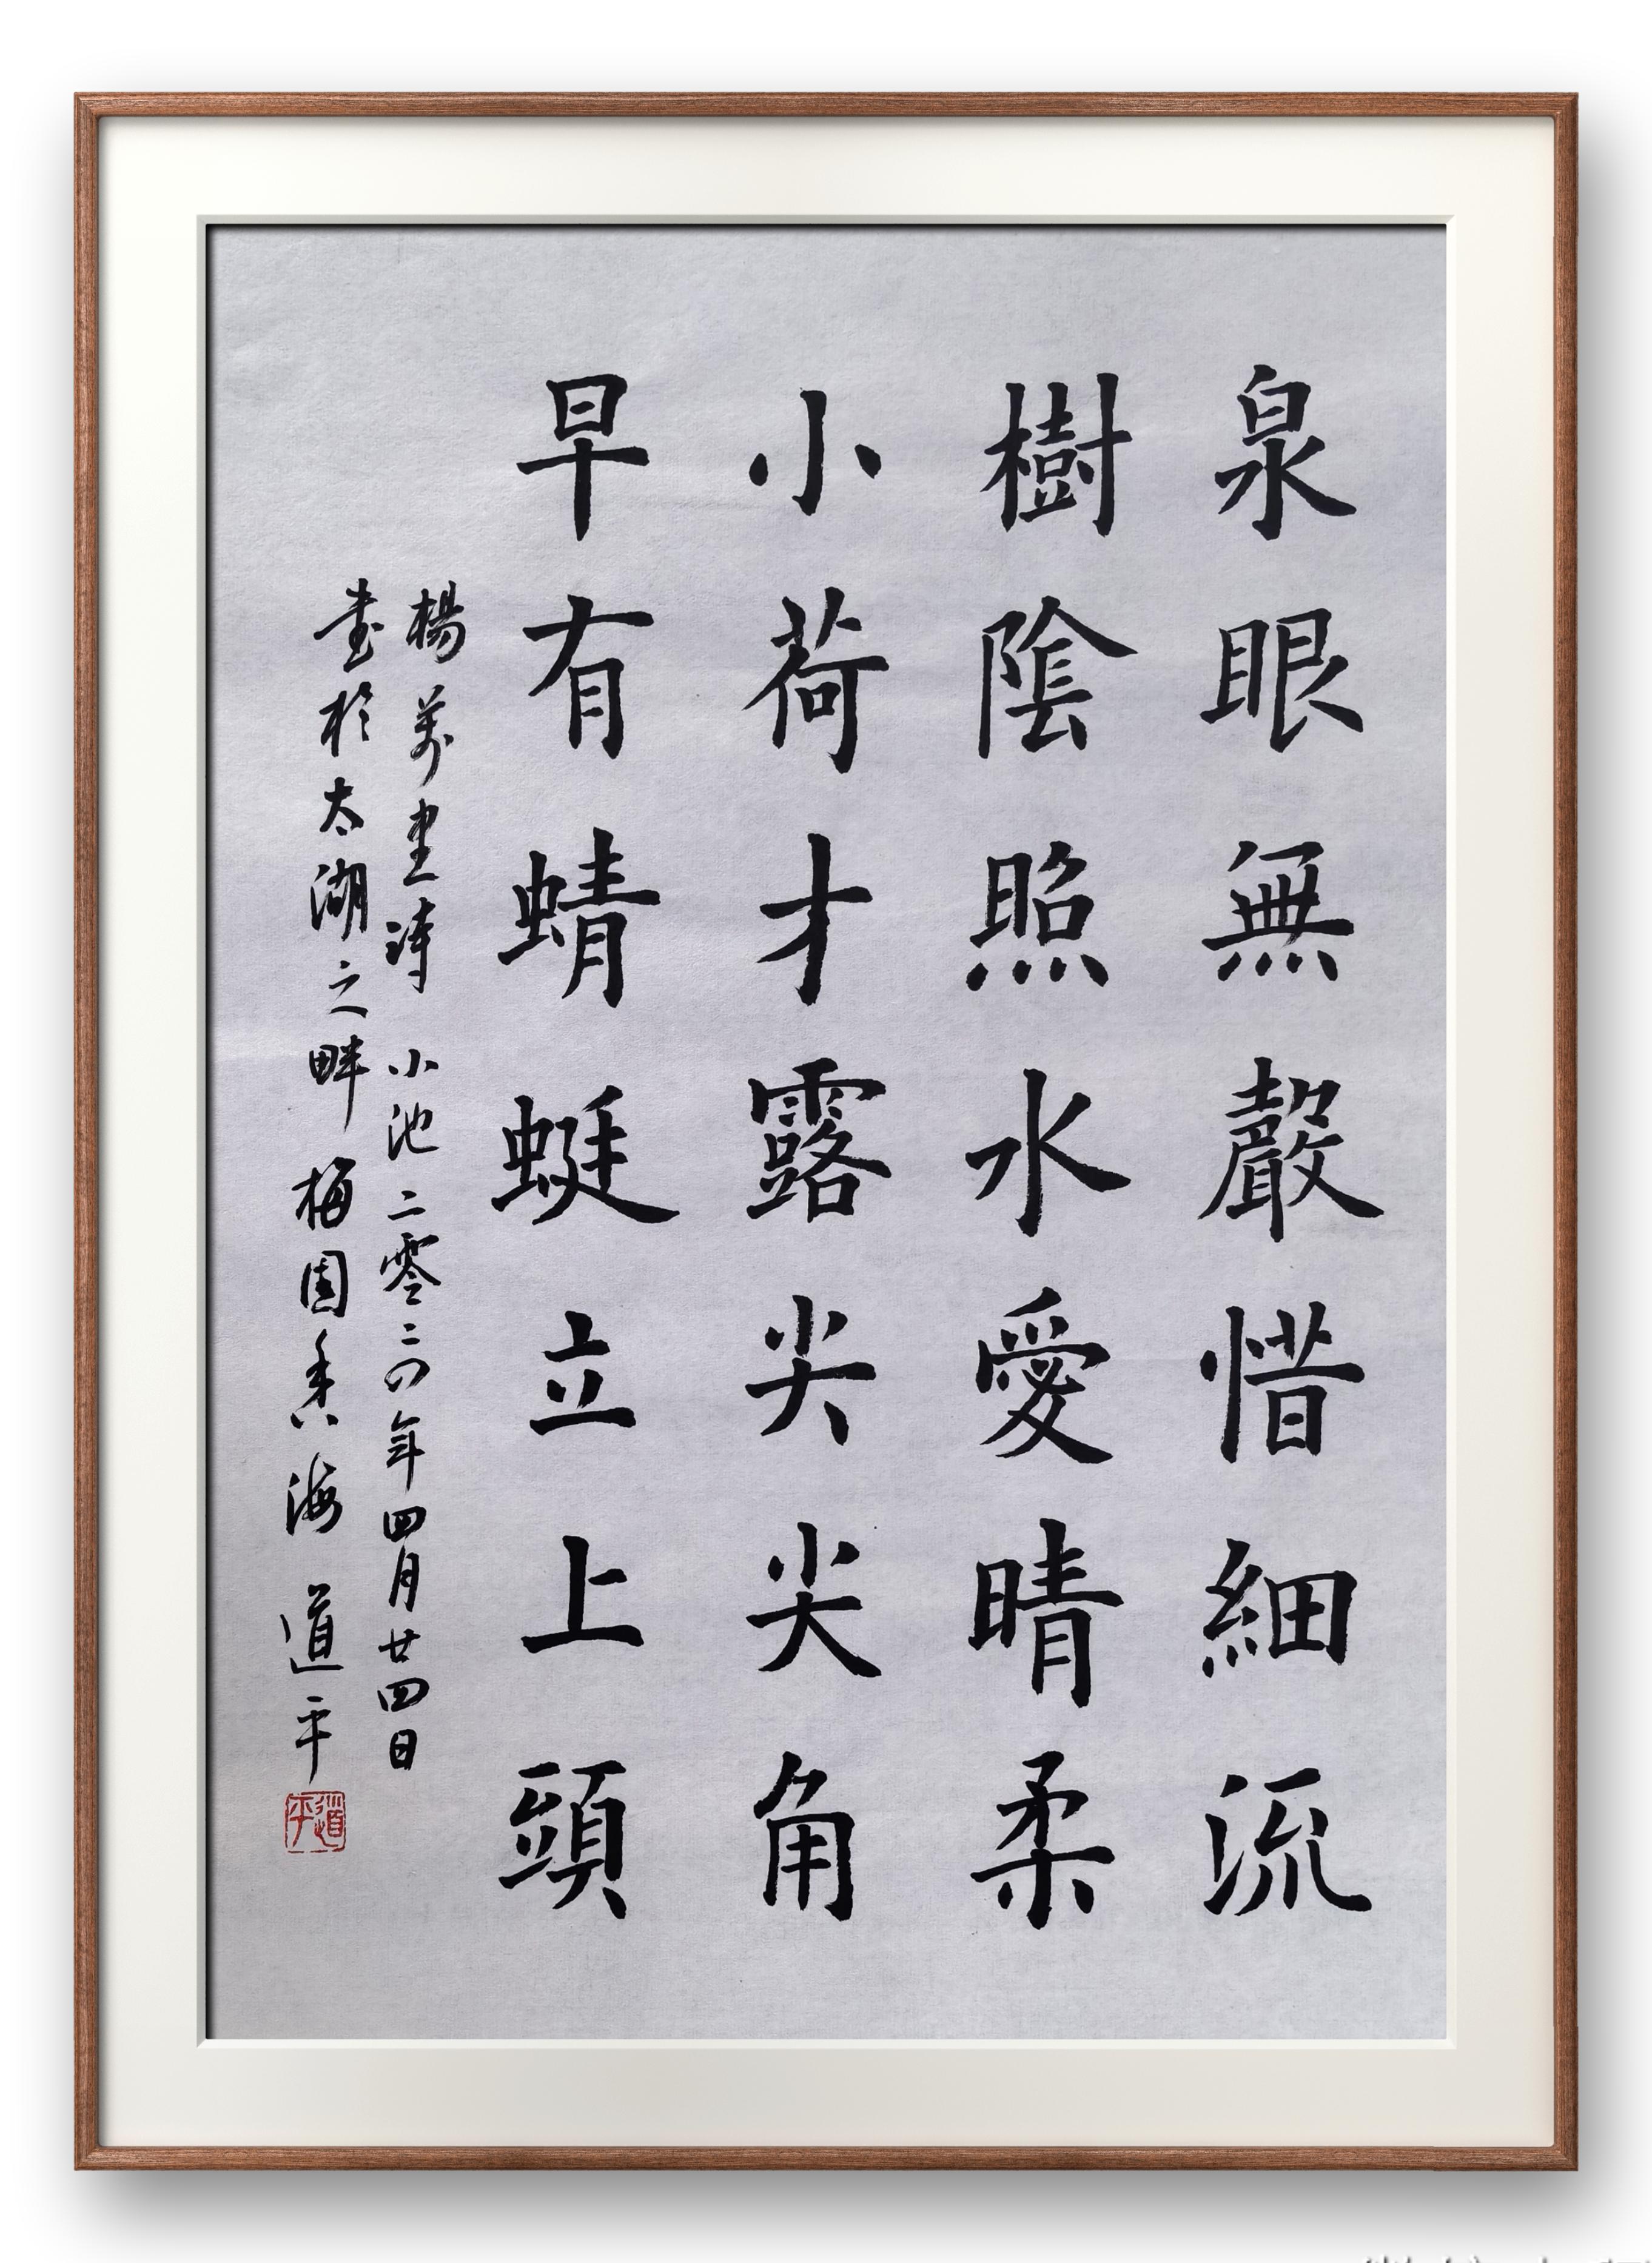 泉眼無聲惜細流
樹陰照水愛晴柔
小荷才露尖尖角
早有蜻蜓立上頭
楊萬里詩 小池 二零二四年四月廿四日
書於太湖之畔 梅園香海 道平
道平